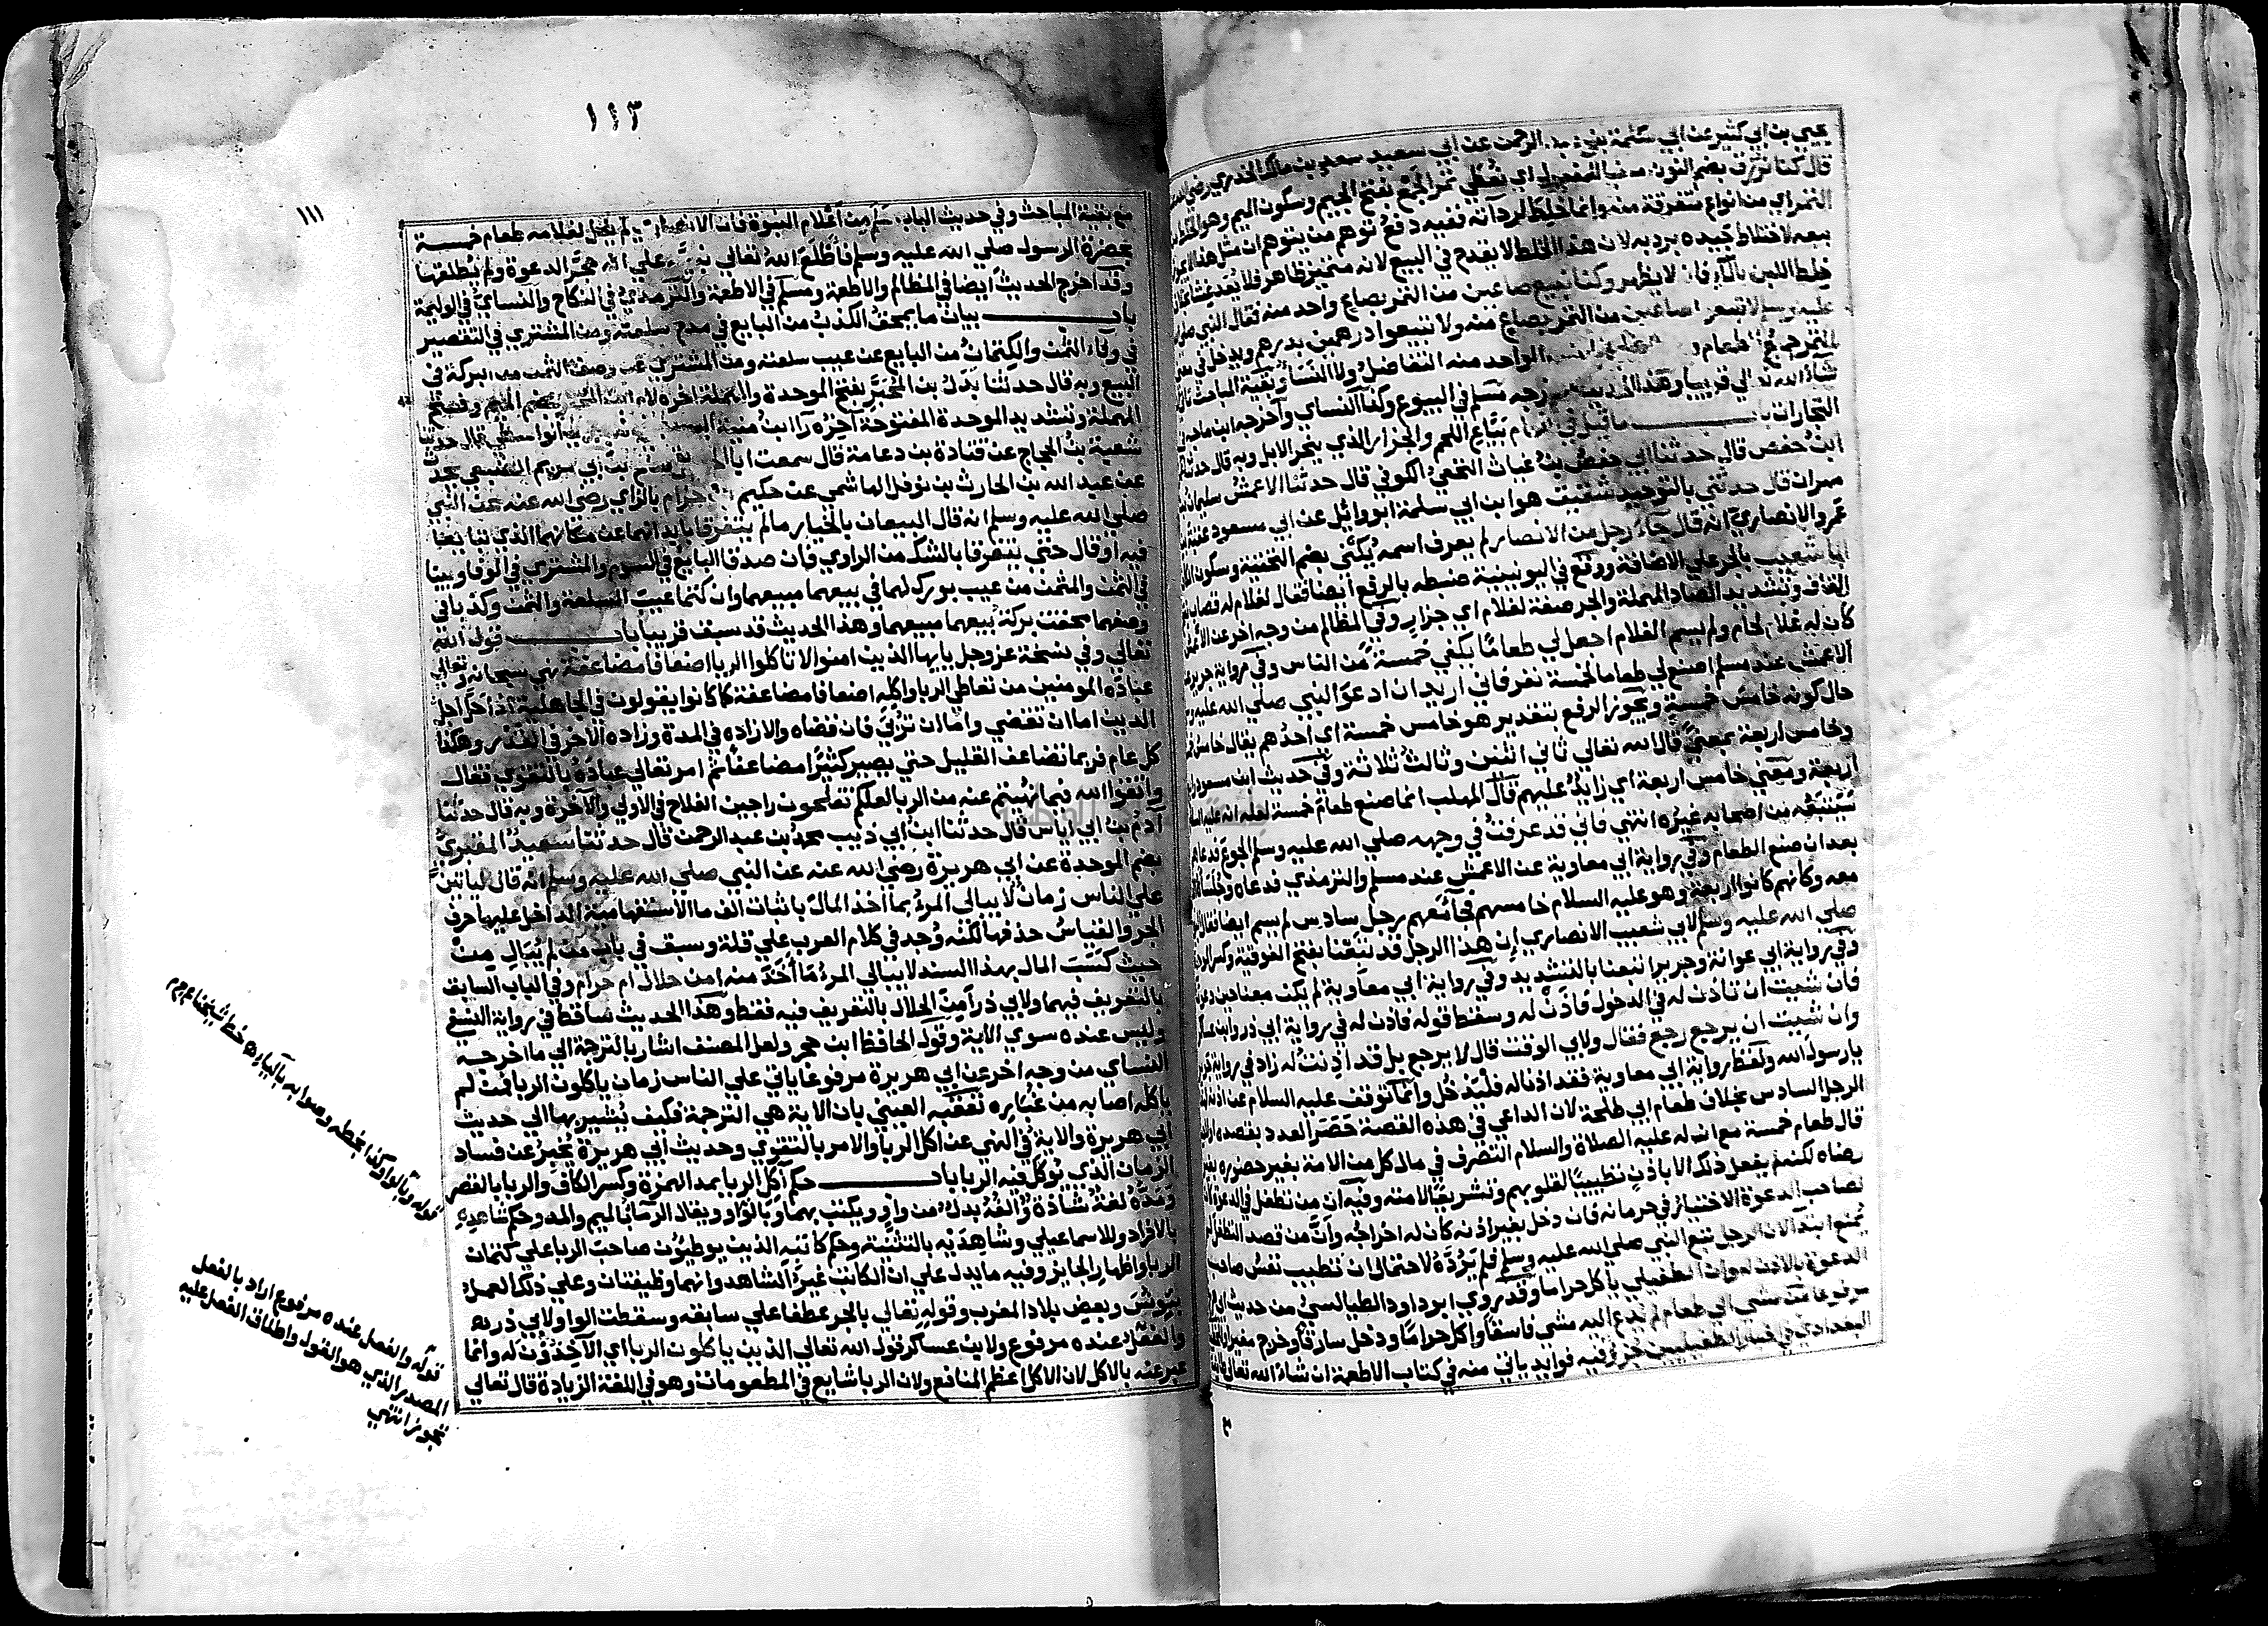 يحيى بن ابي كثير عن ابي سلمة بن عبد الرحمن عن ابي سعيد سعد بن مالك الخدري رضي الله عنه
قال كنا نرزق بضم النون مبنيا للمفعول اي نعطي تمر الجمع بفتح الجيم وسكون الميم وهو الخلط من
التمر اي من انواع متفرقة منه وانما خلط لرداته ففيه دفع توهم من يتوهم ان مثل هذا لا يجوز
بيعه لاختلاط جيده برديه لان هذا الخلط لا يقدح في البيع لانه متميز ظاهر فلا يعد غشا بخلاف
خلط اللبن بالماء فانه لا يظهر وكنا نبيع صاعين من التمر بصاع واحد منه فقال النبي صلى الله
عليه وسلم لا تبيعوا صاعين من التمر بصاع منه ولا تبيعوا درهمين بدرهم ويدخل في معنى
التمر جميع الطعام و الواحد منه التفاضل ولا النسا وبقية المباحث تاتي
شاء الله تعالي قريبا وهذا الحديث اخرجه مسلم في البيوع وكذا النسائي واخرجه ابن ماجه في
التجارات باب ما قيل في اللحام بياع اللحم والجزار الذي ينحر الابل وبه قال حدثنا
ابن حفص قال حدثنا ابي حفص بن غياث النخعي الكوفي قال حدثنا الاعمش سليمان بن
مهران قال حدثني بالتوحيد شقيق هو ابن ابي سلمة ابو وائل عن ابي مسعود عقبة بن
عمرو الانصاري انه قال جاء رجل من الانصار لم يعرف اسمه يكني بضم التحتية وسكون الكاف
ابا شعيب بالجر علي الاضافة ووقع في اليونينية ضبطه بالرفع ايضا فقال لغلام له قصاب بفتح
القاف وتشديد الصاد المهملة والجر صفة لغلام اي جزار وفي المظالم من وجه اخر عن الاعمش
كان له غلام لحام ولم يسم الغلام اجعل لي طعاما يكفي خمسة من الناس وفي رواية جرير عن
الاعمش عند مسلم اصنع لي طعاما لخمسة نفر فاني اريد ان ادعو النبي صلي الله عليه وسلم
حال كونه خامس خمسة ويجوز الرفع بتقدير هو خامس خمسة اي احدهم يقال خامس خمسة
وخامس اربعة بمعني قال الله تعالي ثاني اثنين وثالث ثلاثة وفي حديث ابن مسعود رابع
اربعة ومعني خامس اربعة اي زايد عليهم قال المهلب انما صنع طعام خمسة لعلمه انه عليه السلام
سيتبعه من اصحابه غيره انتهي فاني قد عرفت في وجهه صلي الله عليه وسلم الجوع فدعاهم
بعد ان صنع الطعام وفي رواية ابي معاوية عن الاعمش عند مسلم والترمذي فدعاه وجلساءه الذين
معه وكانهم كانوا اربعة وهو عليه السلام خامسهم فجا معهم رجل سادس لم يسم ايضا فقال النبي
صلي الله عليه وسلم لابي شعيب الانصاري ان هذا الرجل قد تبعنا بفتح الفوقية وكسر الموحدة
وفي رواية ابي عوانة وجرير اتبعنا بالتشديد وفي رواية ابي معاوية لم يكن معنا حين دعوتنا
فان شيت ان تاذن له في الدخول فاذن له وسقط قوله فاذن له في رواية ابي ذر وابن عساكر
وان شيت ان يرجع رجع فقال ولابي الوقت قال لا يرجع بل قد اذنت له زاد في رواية جرير
يا رسول الله ولفظ رواية ابي معاوية فقد اذنا له فليدخل وانما توقف عليه السلام عن اذنه لهذا
الرجل السادس بخلاف طعام ابي طلحة لان الداعي في هذه القصة حصر العدد بقصده اولا حيث
قال طعام خمسة مع ان له عليه الصلاة والسلام التصرف في مال كل من الامة بغير حضوره بغير
رضاه لكنه لم يفعل ذلك الا باذن تطييبا لقلوبهم وتشريعا لامته وفيه ان من تطفل في الدعوة كان
لصاحب الدعوة الاختيار في حرمانه فان دخل بغير اذنه كان له اخراجه وان من قصد التطفل لم
يمنع ابتداء لان الرجل تبع النبي صلي الله عليه وسلم فلم يرده لاحتمال ان تطيب نفس صاحب
الدعوة بالاذن له وان الطفيلي ياكل حراما وقد روي ابو داود الطيالسي من حديث ابي هريرة
مرفوعا من مشي الي طعام لم يدع اليه مشي فاسقا واكل حراما ودخل سارقا وخرج مغيرا
البغدادي في الطفيليين جزء وفيه فوايد ياتي منه في كتاب الاطعمة ان شاء الله تعالي
١١٣
١١١
مع بقية المباحث وفي حديث الباب علم من اعلام النبوة فان الانصاري لم يقل لغلامه طعام خمسة
بحضرة الرسول صلي الله عليه وسلم فاطلع الله تعالي نبيه علي انه حجر الدعوة ولم يطلقها
وقد اخرج الحديث ايضا في المظالم والاطعمة ومسلم في الاطعمة والترمذي في النكاح والنسائي في الوليمة
باب بيان ما يمحق الكذب من البايع في مدح سلعته ومن المشتري في التقصير
في وفاء الثمن والكتمان من البايع عن عيب سلعته ومن المشتري عن وصف الثمن من البركة في
البيع وبه قال حدثنا بدل بن المحبر بفتح الموحدة والمهملة اخره لام ابن المحبر بضم الميم وفتح
المهملة وتشديد الموحدة المفتوحة اخره راء ابن منبه الواسطي قال حدثنا
شعبة بن الحجاج عن قتادة بن دعامة قال سمعت ابا الخليل صالح بن ابي مريم الضبعي يحدث
عن عبد الله بن الحارث بن نوفل الهاشمي عن حكيم بن حزام بالزاي رضي الله عنه عن النبي
صلي الله عليه وسلم انه قال البيعان بالخيار مالم يتفرقا بابدانهما عن مكانهما الذي تبايعا
فيه او قال حتي يتفرقا بالشك من الراوي فان صدقا البايع في السوم والمشتري في الوفا وبينا
في الثمن والمثمن من عيب بورك لهما في بيعهما مبيعهما وان كتما عيب السلعة والثمن وكذبا في
وصفهما محقت بركة بيعهما مبيعهما وهذا الحديث قد سبق قريبا باب قول الله
تعالي وفي نسخة عز وجل يا ايها الذين امنوا لا تاكلوا الربا اضعافا مضاعفة نهي سبحانه وتعالي
عباده المومنين من تعاطي الربا واكله اضعافا مضاعفة كما كانوا يقولون في الجاهلية اذا حل اجل
الدين اما ان تقضي واما ان تربي فان قضاه والا زاده في المدة وزاده الاخر في القدر وهكذا
كل عام فربما تضاعف القليل حتي يصير كثيرا مضاعفا ثم امر تعالي عباده بالتقوي فقال
واتقوا الله فيما نهيتم عنه من الربا لعلكم تفلحون راجين الفلاح في الاولي والاخرة وبه قال حدثنا
آدم بن ابي اياس قال حدثنا ابن ابي ذيب محمد بن عبد الرحمن قال حدثنا سعيد المقبري
بضم الموحدة عن ابي هريرة رضي الله عنه عن النبي صلي الله عليه وسلم انه قال لياتين
علي الناس زمان لا يبالي المرء بما اخذ المال باثبات الف ما الاستفهامية الداخل عليها حرف
الجر والقياس حذفها لكنه وجد في كلام العرب علي قلة وسبق في باب من لم يبال من
حيث كسب المال بهذا السند لا يبالي المرء ما اخذ منه امن حلال ام حرام وفي الباب السابق
بالتعريف فيهما ولابي ذر امن الحلال بالتعريف فيه فقط وهذا الحديث ساقط في رواية النسفي
وليس عنده سوي الاية وقول الحافظ ابن حجر ولعل المصنف اشار بالترجمة الي ما اخرجه
النسائي من وجه اخر عن ابي هريرة مرفوعا ياتي علي الناس زمان ياكلون الربا فمن لم
ياكله اصابه من غباره تعقبه العيني بان الاية هي الترجمة فكيف يشير بها الي حديث
ابي هريرة والاية في النهي عن اكل الربا والامر بالتقوي وحديث ابي هريرة يخبر عن فساد
الزمان الذي يوكل فيه الربا باب حكم آكل الربا بمد الهمزة وكسر الكاف والربا بالقصر
ومده لغة شاذة والفه بدل من واو ويكتب بهما وبالواو ويقال الرما بالميم والمد وحكم شاهده
بالافراد وللاسماعيلي وشاهديه بالتثنية وحكم كاتبه الذين يوطيون صاحب الربا علي كتمان
الربا واظهار الجايز وفيه ما يدل علي ان الكاتب غير الشاهد وانهما وظيفتان وعلي ذلك العمل
بتونس وبعض بلاد المغرب وقوله تعالي بالجر عطفا علي سابقه وسقطت الواو لابي ذر
والفعل عنده مرفوع ولابن عساكر قول الله تعالي الذين ياكلون الربا اي الآخذون له وانما
عبر عنه بالاكل لان الاكل اعظم المنافع ولان الربا شايع في المطعومات وهو في اللغة الزيادة قال تعالي
قوله وبالواو كذا بخطه وصوابه بالياء خط شيخنا عجم
قوله والفعل عنده مرفوع اراد بالفعل
المصدر الذي هو القول واطلاق الفعل عليه
تجوز انتهي